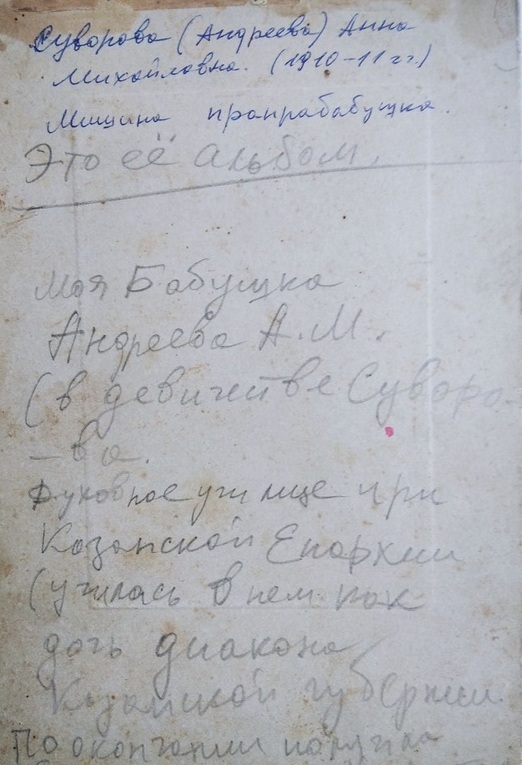 Суворова (Андреева) Анна
Михайловна. (1910-11 гг.)
Мишина прапрабабушка.
Это её альбом.
Моя Бабушка
Андреева А.М.
(в девичестве Суворо-
-ва.
Духовное училище при
Казанской Епархии
(училась в нем как
дочь диакона
Казанской губернии
По окончании получила